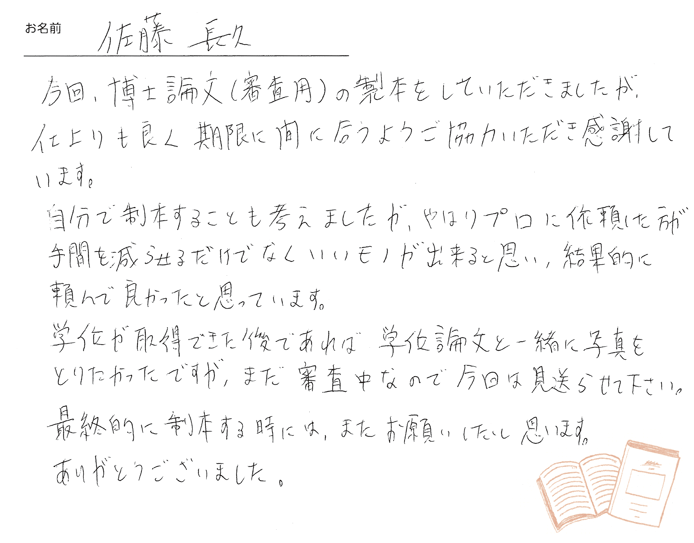 お名前 佐藤 長久
今回、博士論文(審査用)の製本をしていただきましたが、
仕上りも良く 期限に間に合うようご協力いただき感謝して
います。
自分で制本することも考えましたが、やはりプロに依頼した方が
手間を減らせるだけでなくいいモノが出来ると思い、結果的に
頼んで良かったと思っています。
学位が取得できた後であれば 学位論文と一緒に写真を
とりたかったですが、まだ審査中なので今回は見送らせて下さい。
最終的に制本する時には、またお願いしたいと思います。
ありがとうございました。